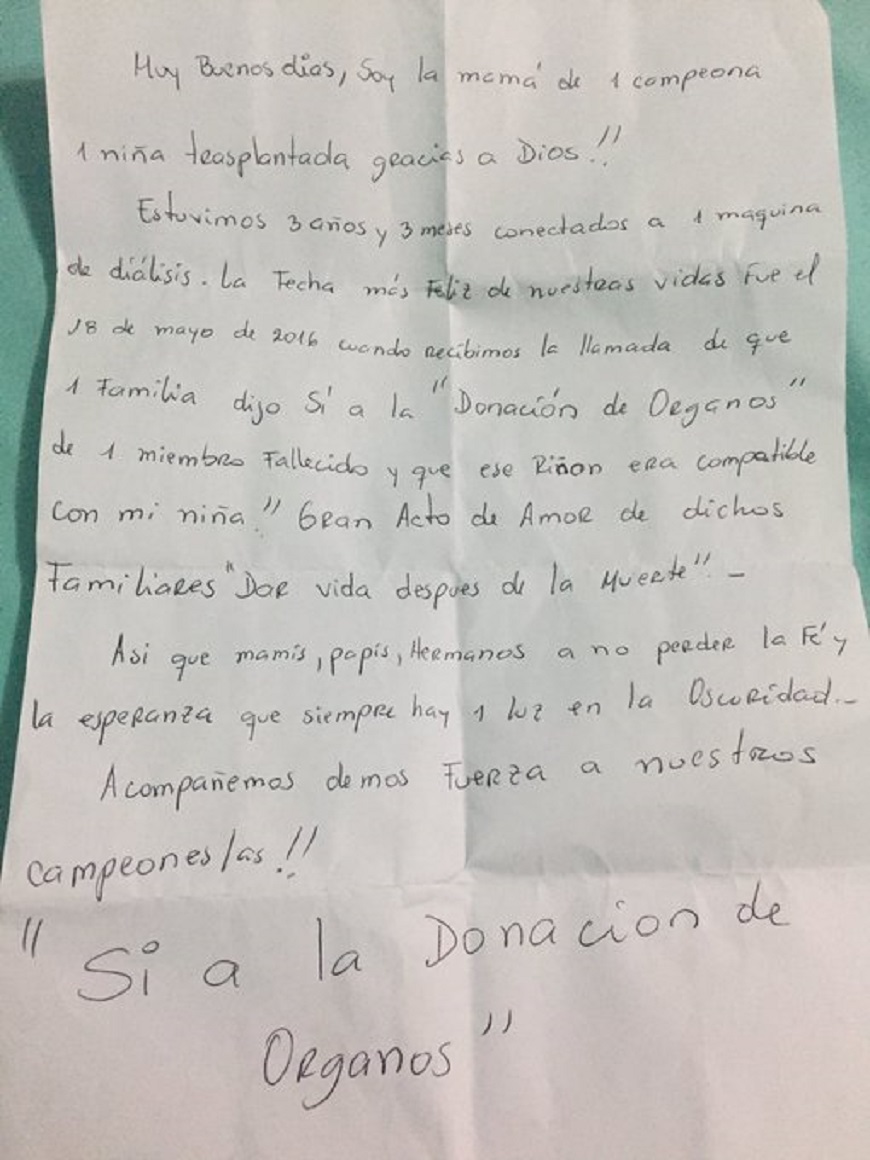 Muy Buenos dias, Soy la mamá de 1 campeona
1 niña trasplantada gracias a Dios!!
Estuvimos 3 años y 3 meses conectados a 1 maquina
de diálisis. La Fecha más Feliz de nuestras vidas Fue el
18 de mayo de 2016 cuando recibimos la llamada de que
1 Familia dijo Sí a la "Donación de Organos"
de 1 miembro Fallecido y que ese Riñon era compatible
con mi niña!! Gran Acto de Amor de dichos
Familiares "Dar vida despues de la Muerte".-
Asi que mamis, papis, Hermanos a no perder la Fé y
la esperanza que siempre hay 1 luz en la Oscuridad.-
Acompañemos demos Fuerza a nuestros
campeones/as!!
"Si a la Donacion de
Organos"